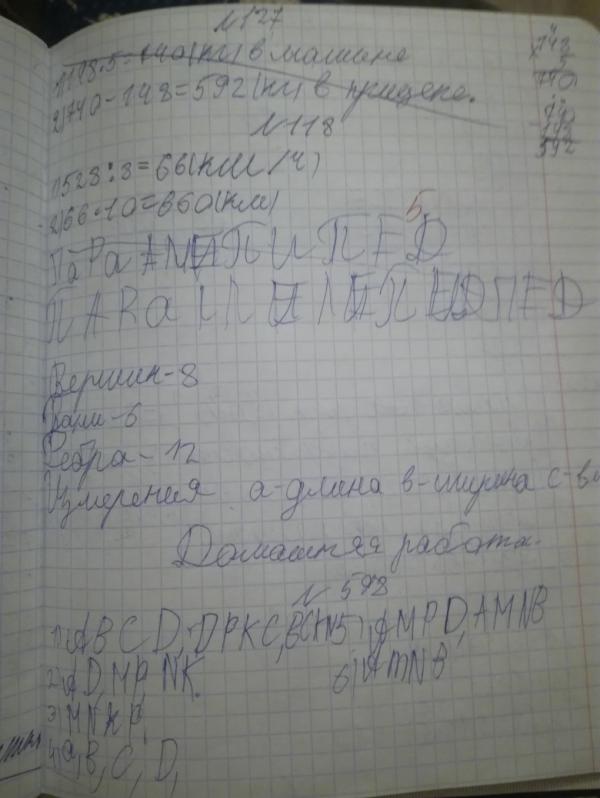 №127
1) 148·5=740(кг) в машине
2) 740-148=592(кг) в прицепе.
148
5
740
740
148
592
№118
1) 528:8=66(км/ч)
2) 66·10=660(км)
5
Вершин-8
Грани-6
Ребра-12
Измерения a-длина в-ширина с-вы
Домашняя работа.
№ 598
1) ABCD, DPKC, BCKN 5) AMPD, AMNB
2) AD, MP, NK. 6) AMNB
3) MNKP,
4) a, B, C, D,